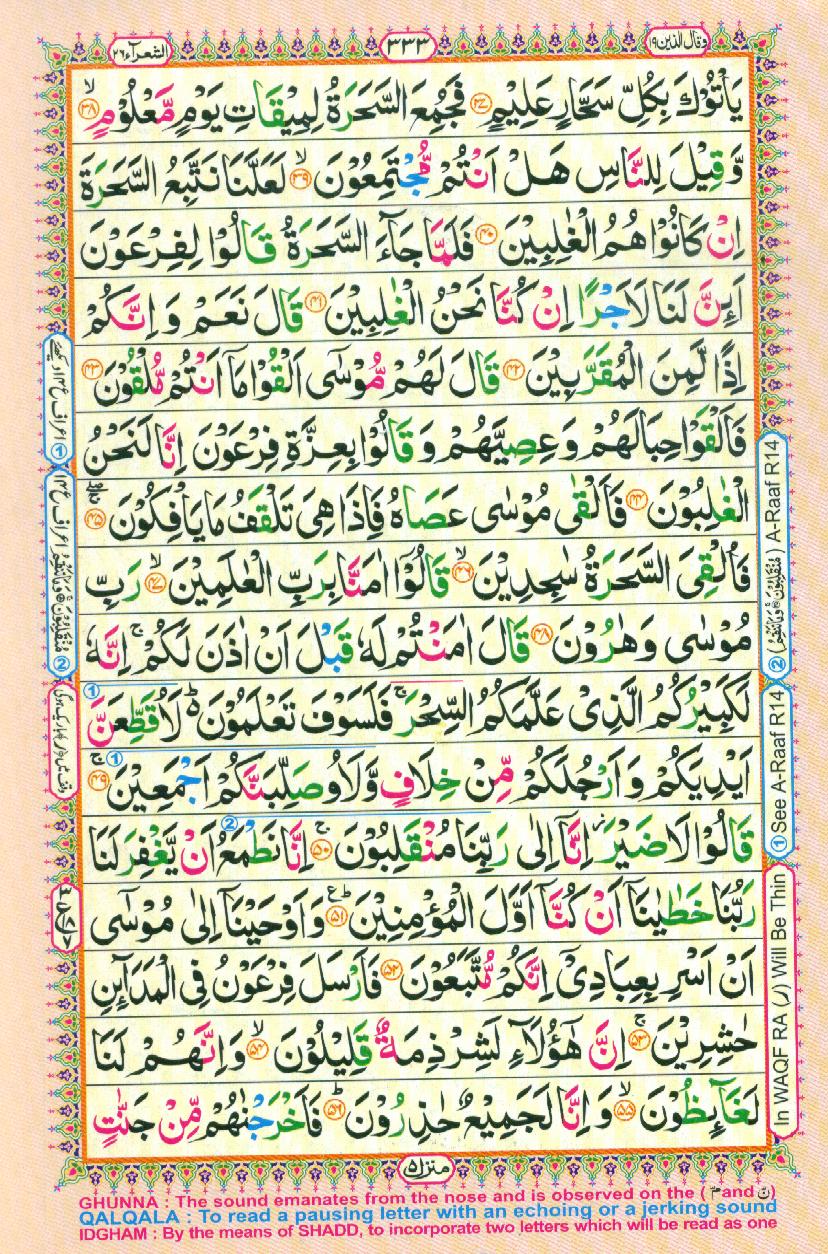 وقال الذين ۱۹
۳۳۳
الشعرآء ۲۶
يَاْتُوْكَ بِكُلِّ سَحَّارٍ عَلِيْمٍ ۳۷ فَجُمِعَ السَّحَرَةُ لِمِيْقَاتِ يَوْمٍ مَّعْلُوْمٍ ۙ ۳۸
وَّقِيْلَ لِلنَّاسِ هَلْ اَنْتُمْ مُّجْتَمِعُوْنَ ۙ ۳۹ لَعَلَّنَا نَتَّبِعُ السَّحَرَةَ
اِنْ كَانُوْا هُمُ الْغٰلِبِيْنَ ۴۰ فَلَمَّا جَآءَ السَّحَرَةُ قَالُوْا لِفِرْعَوْنَ
اَئِنَّ لَنَا لَاَجْرًا اِنْ كُنَّا نَحْنُ الْغٰلِبِيْنَ ۴۱ قَالَ نَعَمْ وَاِنَّكُمْ
اِذًا لَّمِنَ الْمُقَرَّبِيْنَ ۴۲ قَالَ لَهُمْ مُّوْسٰٓى اَلْقُوْا مَاۤ اَنْتُمْ مُّلْقُوْنَ ۴۳
فَاَلْقَوْا حِبَالَهُمْ وَعِصِيَّهُمْ وَقَالُوْا بِعِزَّةِ فِرْعَوْنَ اِنَّا لَنَحْنُ
الْغٰلِبُوْنَ ۴۴ فَاَلْقٰى مُوْسٰى عَصَاهُ فَاِذَا هِىَ تَلْقَفُ مَا يَاْفِكُوْنَ ۴۵
فَاُلْقِىَ السَّحَرَةُ سٰجِدِيْنَ ۙ ۴۶ قَالُوْۤا اٰمَنَّا بِرَبِّ الْعٰلَمِيْنَ ۙ ۴۷ رَبِّ
مُوْسٰى وَهٰرُوْنَ ۴۸ قَالَ اٰمَنْتُمْ لَهٗ قَبْلَ اَنْ اٰذَنَ لَكُمْ ۚ اِنَّهٗ
لَكَبِيْرُكُمُ الَّذِىْ عَلَّمَكُمُ السِّحْرَ ۚ فَلَسَوْفَ تَعْلَمُوْنَ ؕ لَاُقَطِّعَنَّ
اَيْدِيَكُمْ وَاَرْجُلَكُمْ مِّنْ خِلَافٍ وَّلَاُوصَلِّبَنَّكُمْ اَجْمَعِيْنَ ۚ ۴۹
قَالُوْا لَا ضَيْرَ ۫ اِنَّاۤ اِلٰى رَبِّنَا مُنْقَلِبُوْنَ ۚ ۵۰ اِنَّا نَطْمَعُ اَنْ يَّغْفِرَ لَنَا
رَبُّنَا خَطٰيٰنَاۤ اَنْ كُنَّاۤ اَوَّلَ الْمُؤْمِنِيْنَ ؕ ۵۱ وَاَوْحَيْنَاۤ اِلٰى مُوْسٰٓى
اَنْ اَسْرِ بِعِبَادِىْۤ اِنَّكُمْ مُّتَّبَعُوْنَ ۵۲ فَاَرْسَلَ فِرْعَوْنُ فِى الْمَدَآئِنِ
حٰشِرِيْنَ ۚ ۵۳ اِنَّ هٰٓؤُلَآءِ لَشِرْذِمَةٌ قَلِيْلُوْنَ ۙ ۵۴ وَاِنَّهُمْ لَنَا
لَغَآئِظُوْنَ ۙ ۵۵ وَاِنَّا لَجَمِيْعٌ حٰذِرُوْنَ ؕ ۵۶ فَاَخْرَجْنٰهُمْ مِّنْ جَنّٰتٍ
منزل ۵
② A-Raaf R14
① See A-Raaf R14
In WAQF RA (ر) Will Be Thin
GHUNNA : The sound emanates from the nose and is observed on the (مّ and نّ)
QALQALA : To read a pausing letter with an echoing or a jerking sound
IDGHAM : By the means of SHADD, to incorporate two letters which will be read as one